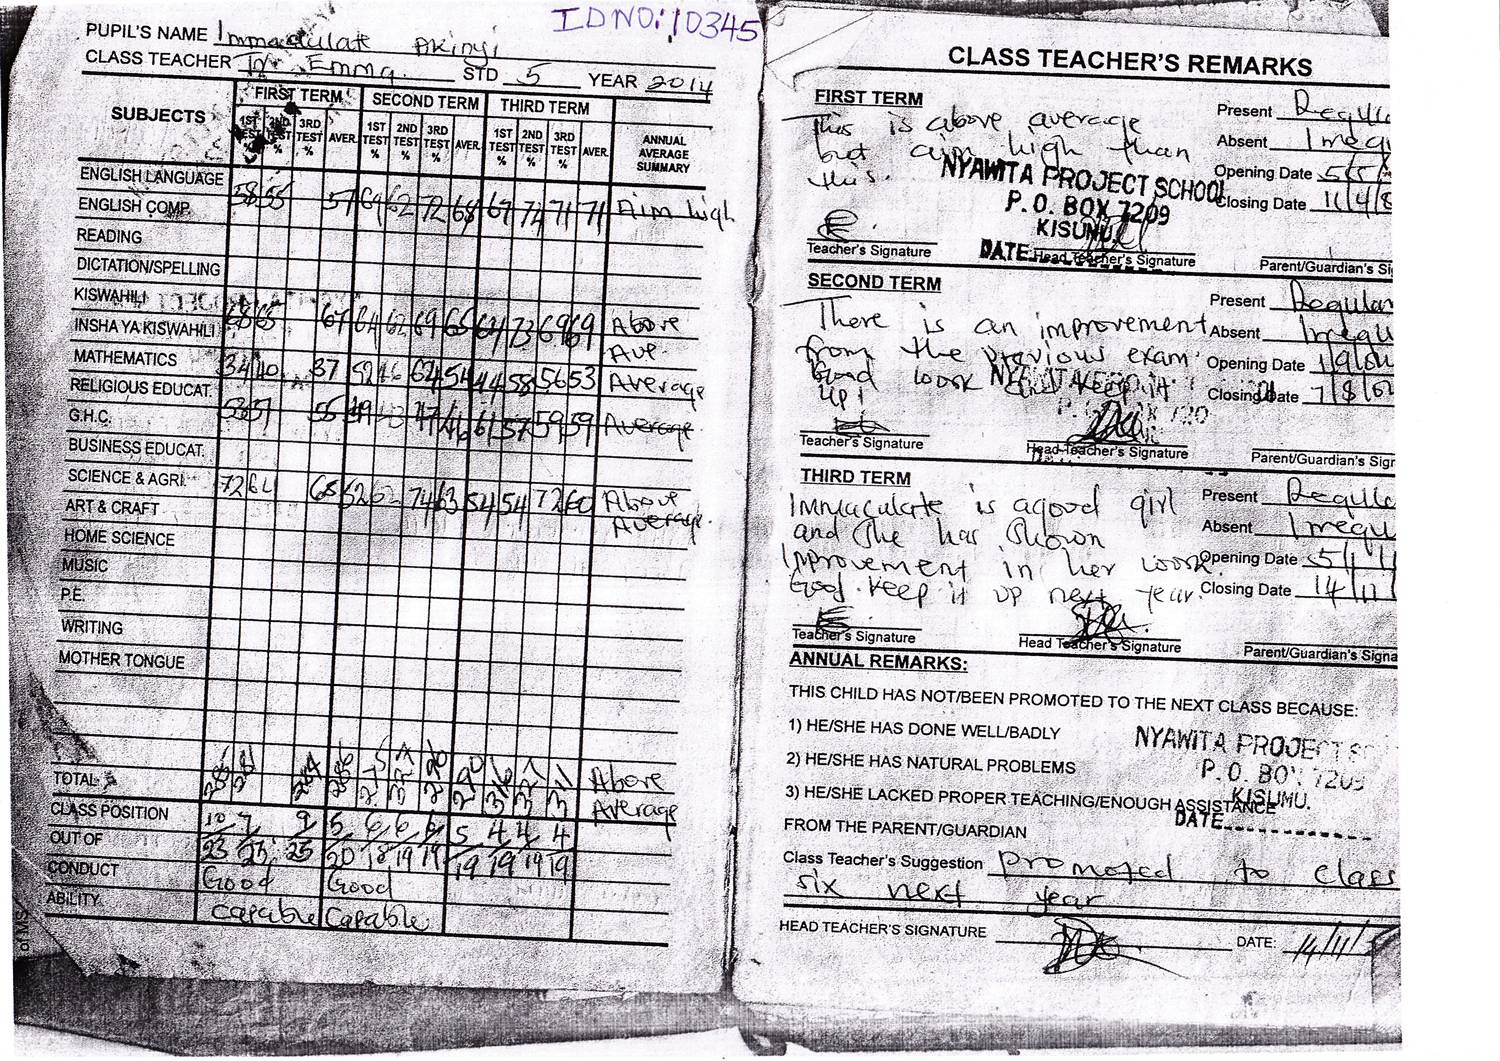 ID NO: 10345
PUPIL'S NAME Immaculate Akinyi
CLASS TEACHER Tr Emma STD 5 YEAR 2014
SUBJECTS
FIRST TERM SECOND TERM THIRD TERM
1ST TEST % 2ND TEST % 3RD TEST % AVER. 1ST TEST % 2ND TEST % 3RD TEST % AVER. 1ST TEST % 2ND TEST % 3RD TEST % AVER.
ANNUAL AVERAGE SUMMARY
ENGLISH LANGUAGE
ENGLISH COMP. 58 55 57 69 62 72 68 67 74 71 71 Aim high
READING
DICTATION/SPELLING
KISWAHILI
INSHA YA KISWAHILI 68 65 67 64 62 69 65 64 73 69 69 Above
Ave.
MATHEMATICS
34 40 37 52 46 62 54 44 58 56 53 Average
RELIGIOUS EDUCAT.
G.H.C. 53 57 55 49 47 46 61 57 59 59 Average
BUSINESS EDUCAT.
SCIENCE & AGRI. 72 64 68 52 62 74 63 54 54 72 60 Above
Average.
ART & CRAFT
HOME SCIENCE
MUSIC
P.E.
WRITING
MOTHER TONGUE
TOTAL Above
Average
CLASS POSITION 10 7 9 5 6 6 6 5 4 4 4
OUT OF 23 23 25 20 18 19 19 19 19 19 19
CONDUCT Good Good
ABILITY Capable Capable
of MS
CLASS TEACHER'S REMARKS
FIRST TERM
Present Regula
Absent Irregu
Opening Date 5/5/
Closing Date 11/4/
This is above average
but aim high than
this.
NYAWITA PROJECT SCHOOL
P.O. BOX 7209
KISUMU.
DATE
Teacher's Signature Head Teacher's Signature Parent/Guardian's Si
SECOND TERM
Present Regular
Absent Irregu
Opening Date
Closing Date 7/8/
There is an improvement
from the previous exam.
Good work and keep it
up!
Teacher's Signature Head Teacher's Signature Parent/Guardian's Sigr
THIRD TERM
Present Regula
Absent Irregu
Opening Date 5/
Closing Date 14/11/
Immaculate is a good girl
and She has Shown
Improvement in her work.
Good. Keep it up next year.
Teacher's Signature Head Teacher's Signature Parent/Guardian's Signa
ANNUAL REMARKS:
THIS CHILD HAS NOT/BEEN PROMOTED TO THE NEXT CLASS BECAUSE:
1) HE/SHE HAS DONE WELL/BADLY
2) HE/SHE HAS NATURAL PROBLEMS
3) HE/SHE LACKED PROPER TEACHING/ENOUGH ASSISTANCE
FROM THE PARENT/GUARDIAN
NYAWITA PROJECT
P.O. BOX 7209
KISUMU.
DATE
Class Teacher's Suggestion promoted to class
six next year
HEAD TEACHER'S SIGNATURE DATE: 14/11/